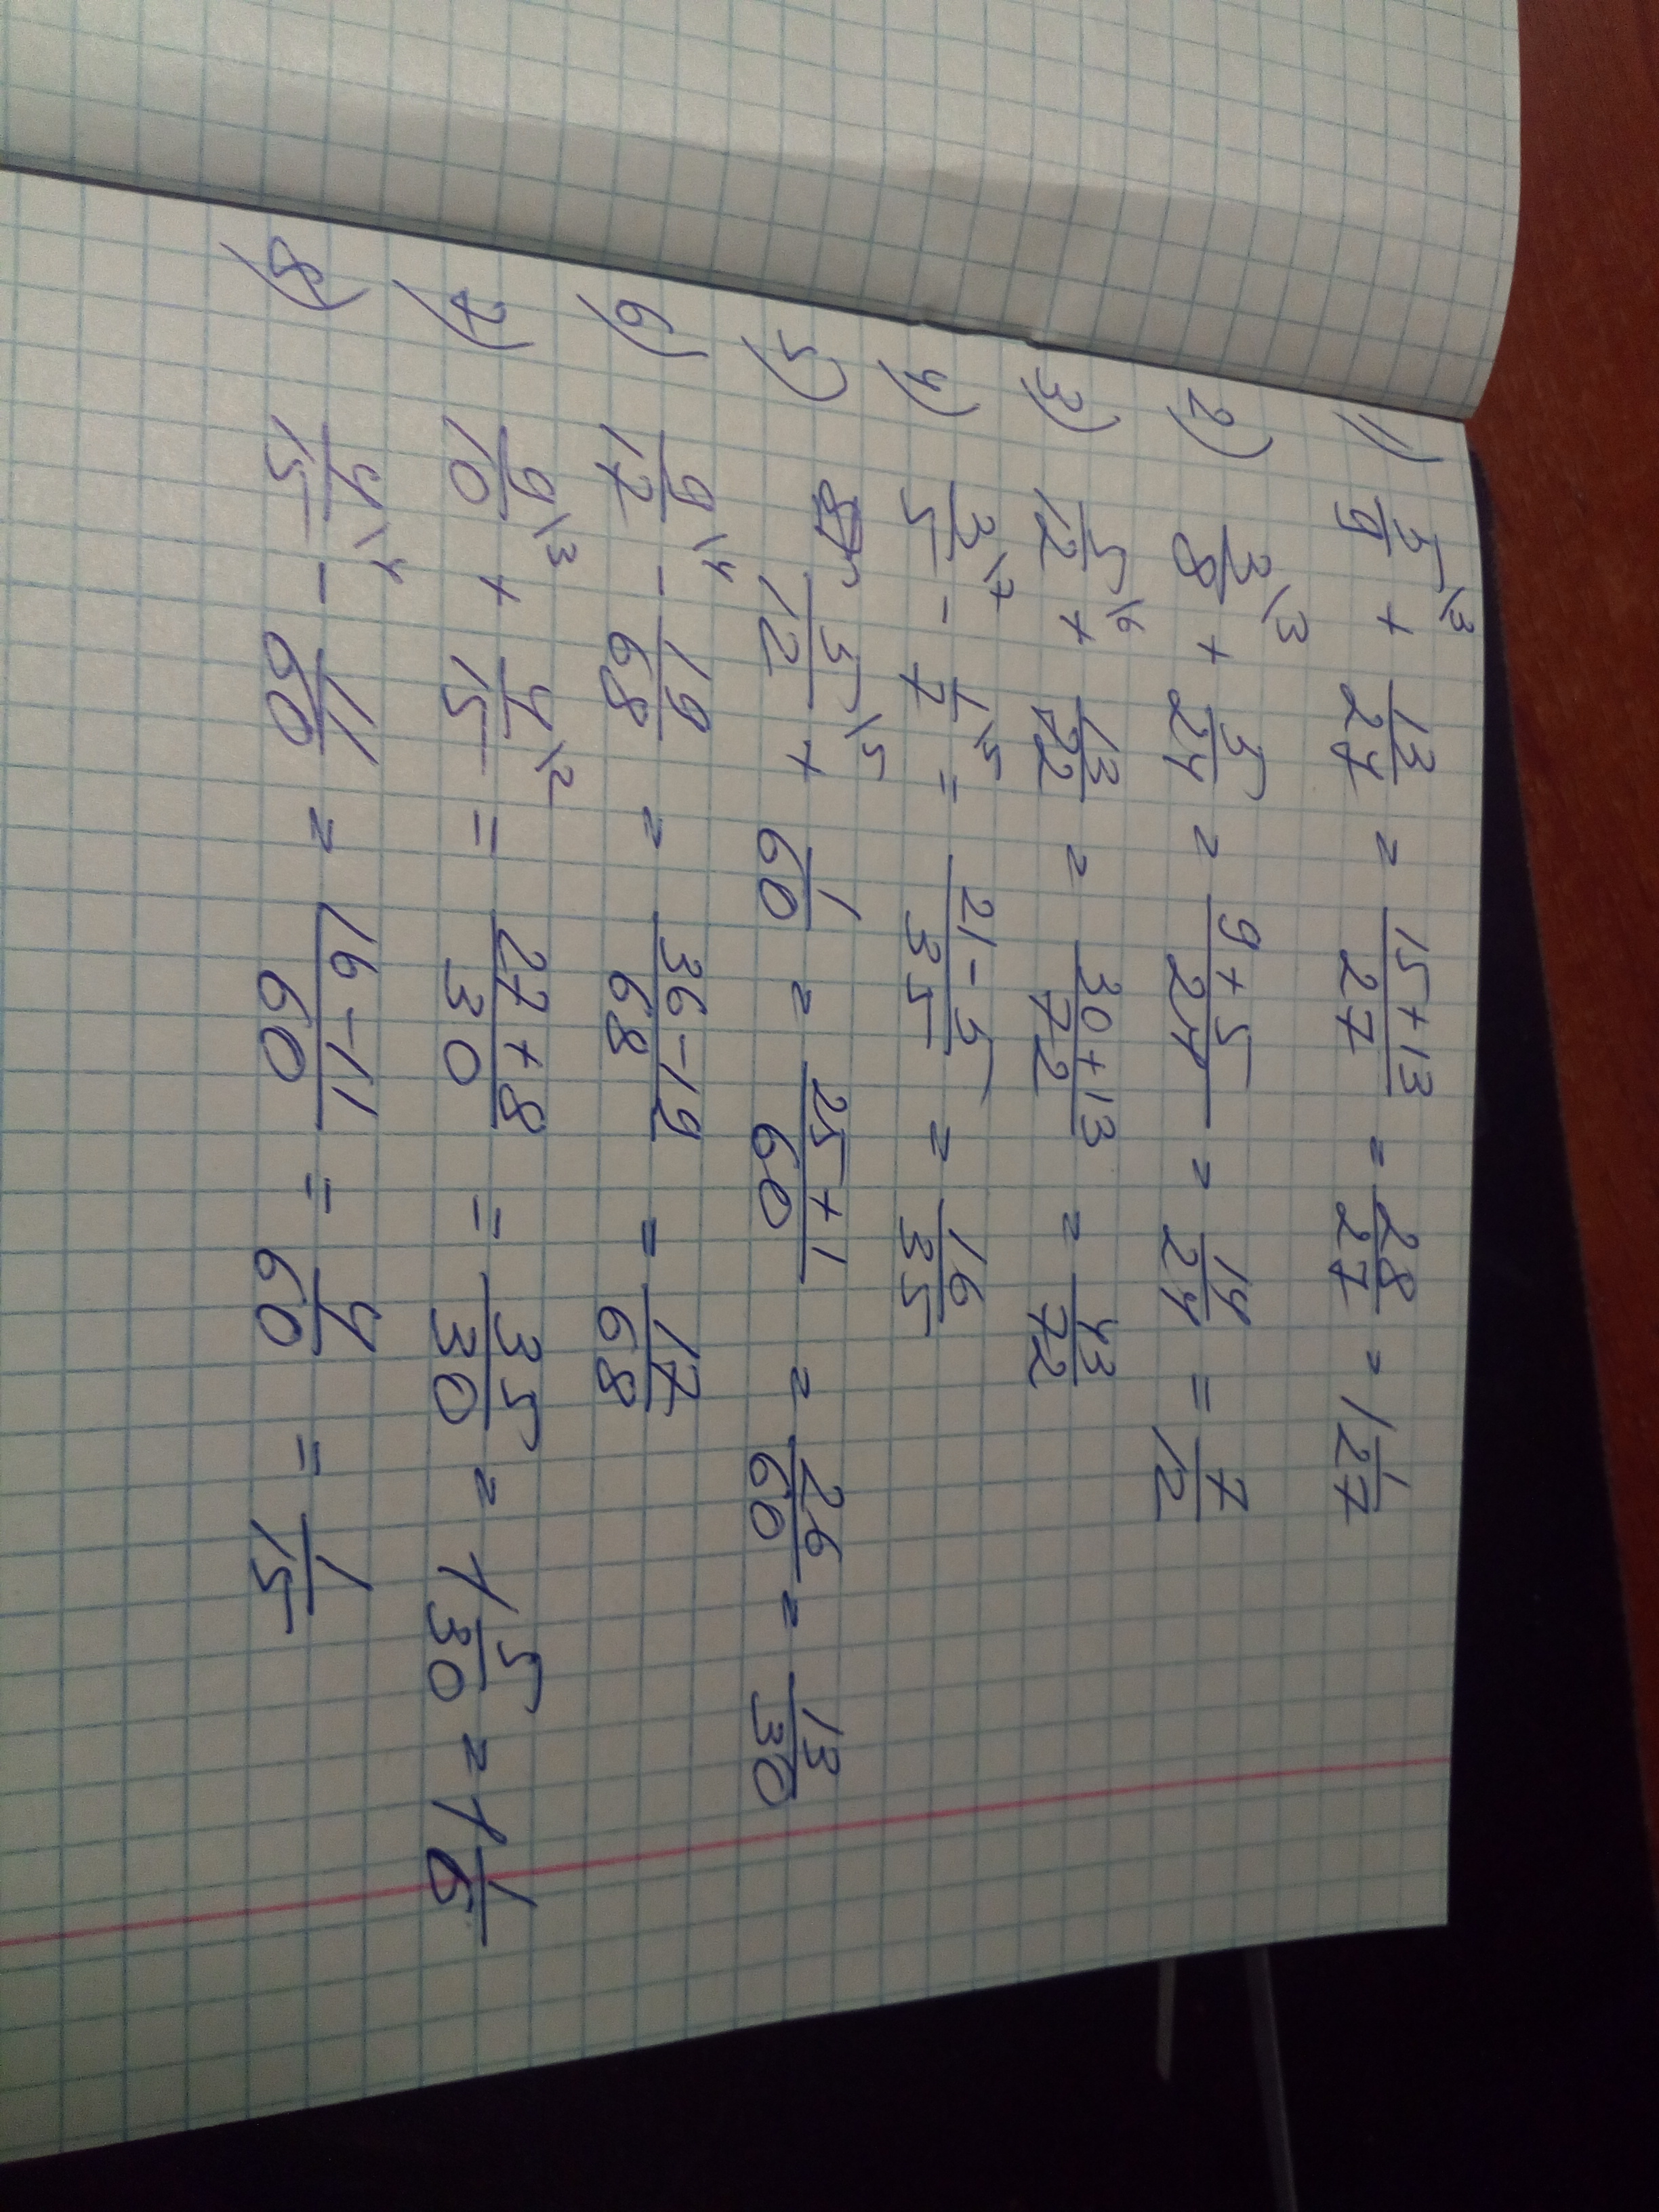 1) 5/9\3 + 13/27 = 15+13/27 = 28/27 = 1 1/27
2) 3/8\3 + 5/24 = 9+5/24 = 14/24 = 7/12
3) 5/12\6 + 13/72 = 30+13/72 = 43/72
4) 3/5\7 - 1/7\5 = 21-5/35 = 16/35
5) 5/12\5 + 1/60 = 25+1/60 = 26/60 = 13/30
6) 9/17\4 - 19/68 = 36-19/68 = 17/68
7) 9/10\3 + 4/15\2 = 27+8/30 = 35/30 = 1 5/30 = 1 1/6
8) 4/15\4 - 11/60 = 16-11/60 = 4/60 = 1/15